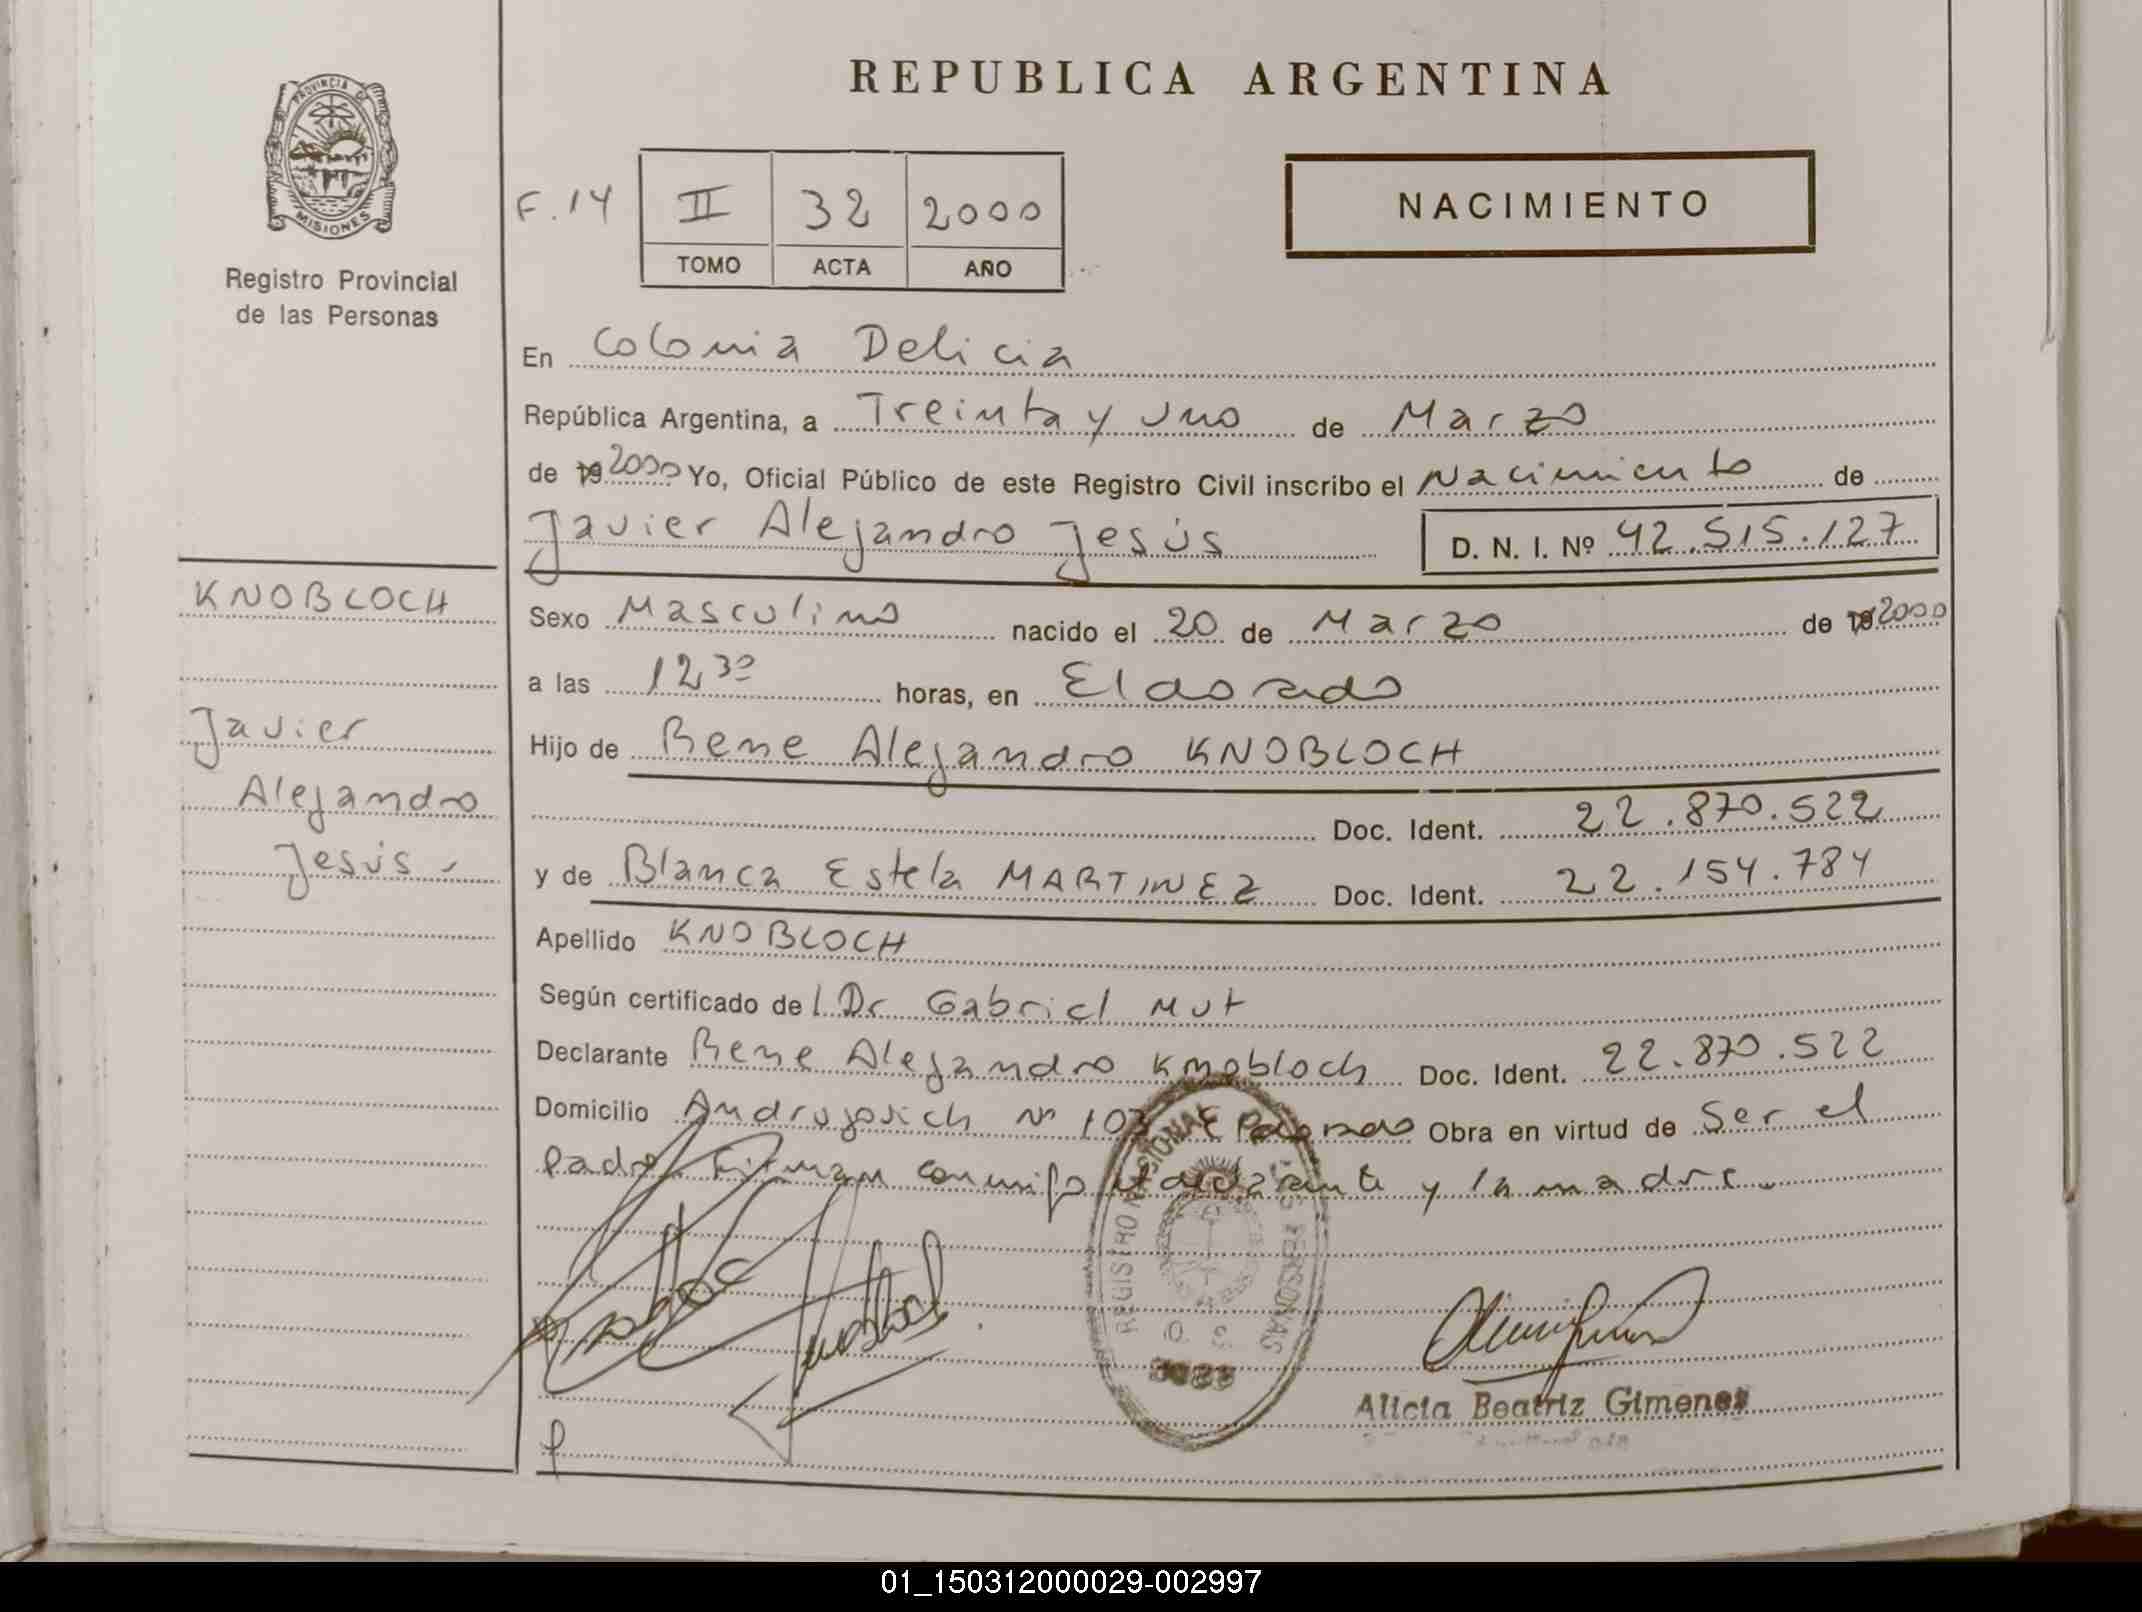 REPUBLICA ARGENTINA
PROVINCIA DE
MISIONES
Registro Provincial
de las Personas
F.14 II 32 2000
TOMO ACTA AÑO
NACIMIENTO
En Colonia Delicia
República Argentina, a Treinta y uno de Marzo
de 19 2000 Yo, Oficial Público de este Registro Civil inscribo el Nacimiento de
Javier Alejandro Jesús D. N. I. Nº 42.515.127
KNOBLOCH
Javier
Alejandro
Jesús
Sexo Masculino nacido el 20 de Marzo de 19 2000
a las 12 30 horas, en Eldorado
Hijo de Rene Alejandro KNOBLOCH
Doc. Ident. 22.870.522
y de Blanca Estela MARTINEZ Doc. Ident. 22.154.784
Apellido KNOBLOCH
Según certificado de l Dr Gabriel Mut
Declarante Rene Alejandro Knobloch Doc. Ident. 22.870.522
Domicilio Nº 103 Obra en virtud de Ser el
padre. Firman conmigo el declarante y la madre.
REGISTRO NACIONAL DE LAS PERSONAS
Alicia Beatriz Gimenes
01_150312000029-002997